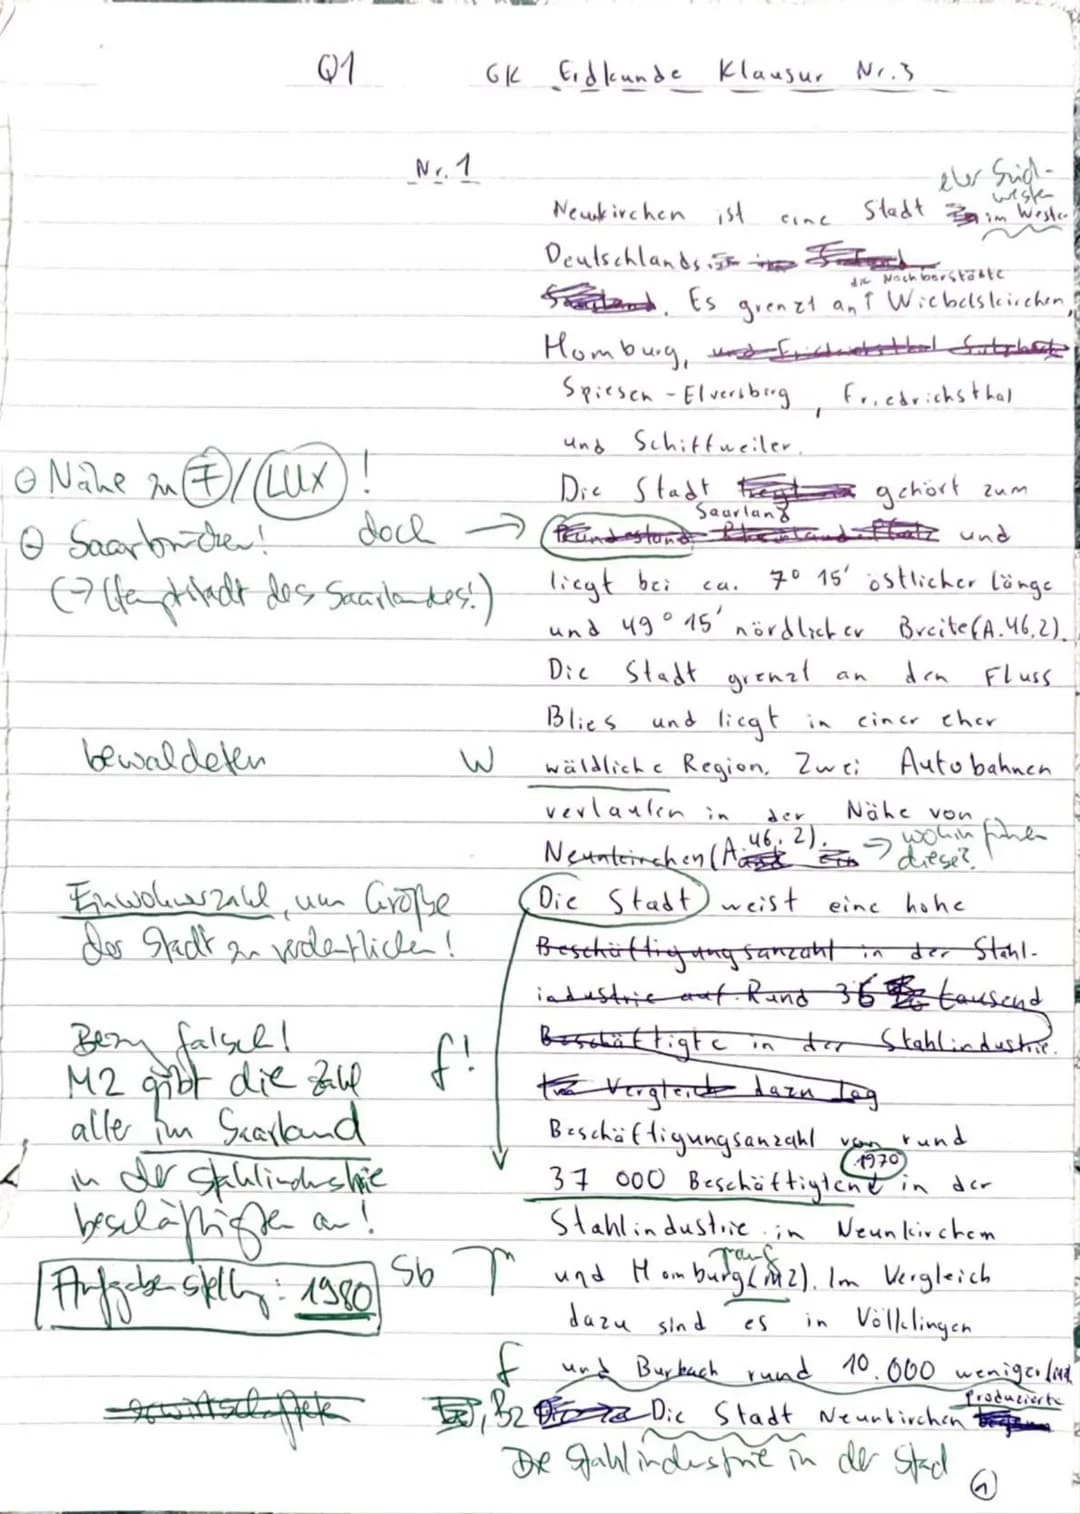 Q1 GK Erdkunde Klausur Nr. 3
Nr. 1
eher Süd-
westen
Neunkirchen ist eine Stadt im Westen
Deutschlands
die Nachbarstädte
Es grenzt an Wiebelskirchen,
Homburg, und Friedrichsthal Sulzbach
Spiesen-Elversberg, Friedrichsthal
und Schiffweiler.
⊖ Nähe zu F/LUX!
Die Stadt liegt gehört zum
Saarland
⊖ Saarbrücken! doch → Bundesland Rheinland-Pfalz und
(→ Hauptstadt des Saarlandes!)
liegt bei ca. 7° 15' östlicher Länge
und 49° 15' nördlicher Breite (A.46,2).
Die Stadt grenzt an den Fluss
Blies und liegt in einer eher
bewaldeten W wäldliche Region. Zwei Autobahnen
verlaufen in der Nähe von
Neunkirchen (A.46,2). → wohin führen
diese?
Einwohnerzahl, um Größe
der Stadt zu verdeutlichen!
Die Stadt weist eine hohe
Beschäftigungsanzahl in der Stahl-
industrie auf. Rund 36 tausend
Beschäftigte in der Stahlindustrie.
Im Vergleich dazu lag
Bezug falsch! f!
M2 gibt die Zahl
aller im Saarland
in der Stahlindustrie
beschäftigten an!
Beschäftigungsanzahl von rund
1970
37 000 Beschäftigten in der
Stahlindustrie in Neunkirchen
Aufgabenstellg: 1980 Sb
und Homburg (M2). Im Vergleich
dazu sind es in Völklingen
f und Burbach rund 10.000 weniger
produzierte
B2 Die Stadt Neunkirchen
Die Stahlindustrie in der Stad
1